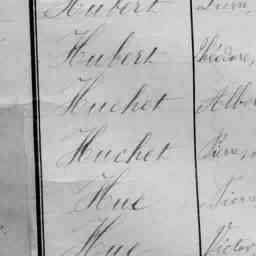 Hubert
Hubert Théodore,
Huchet
Huchet Pierre,
Hue
Hue Victor